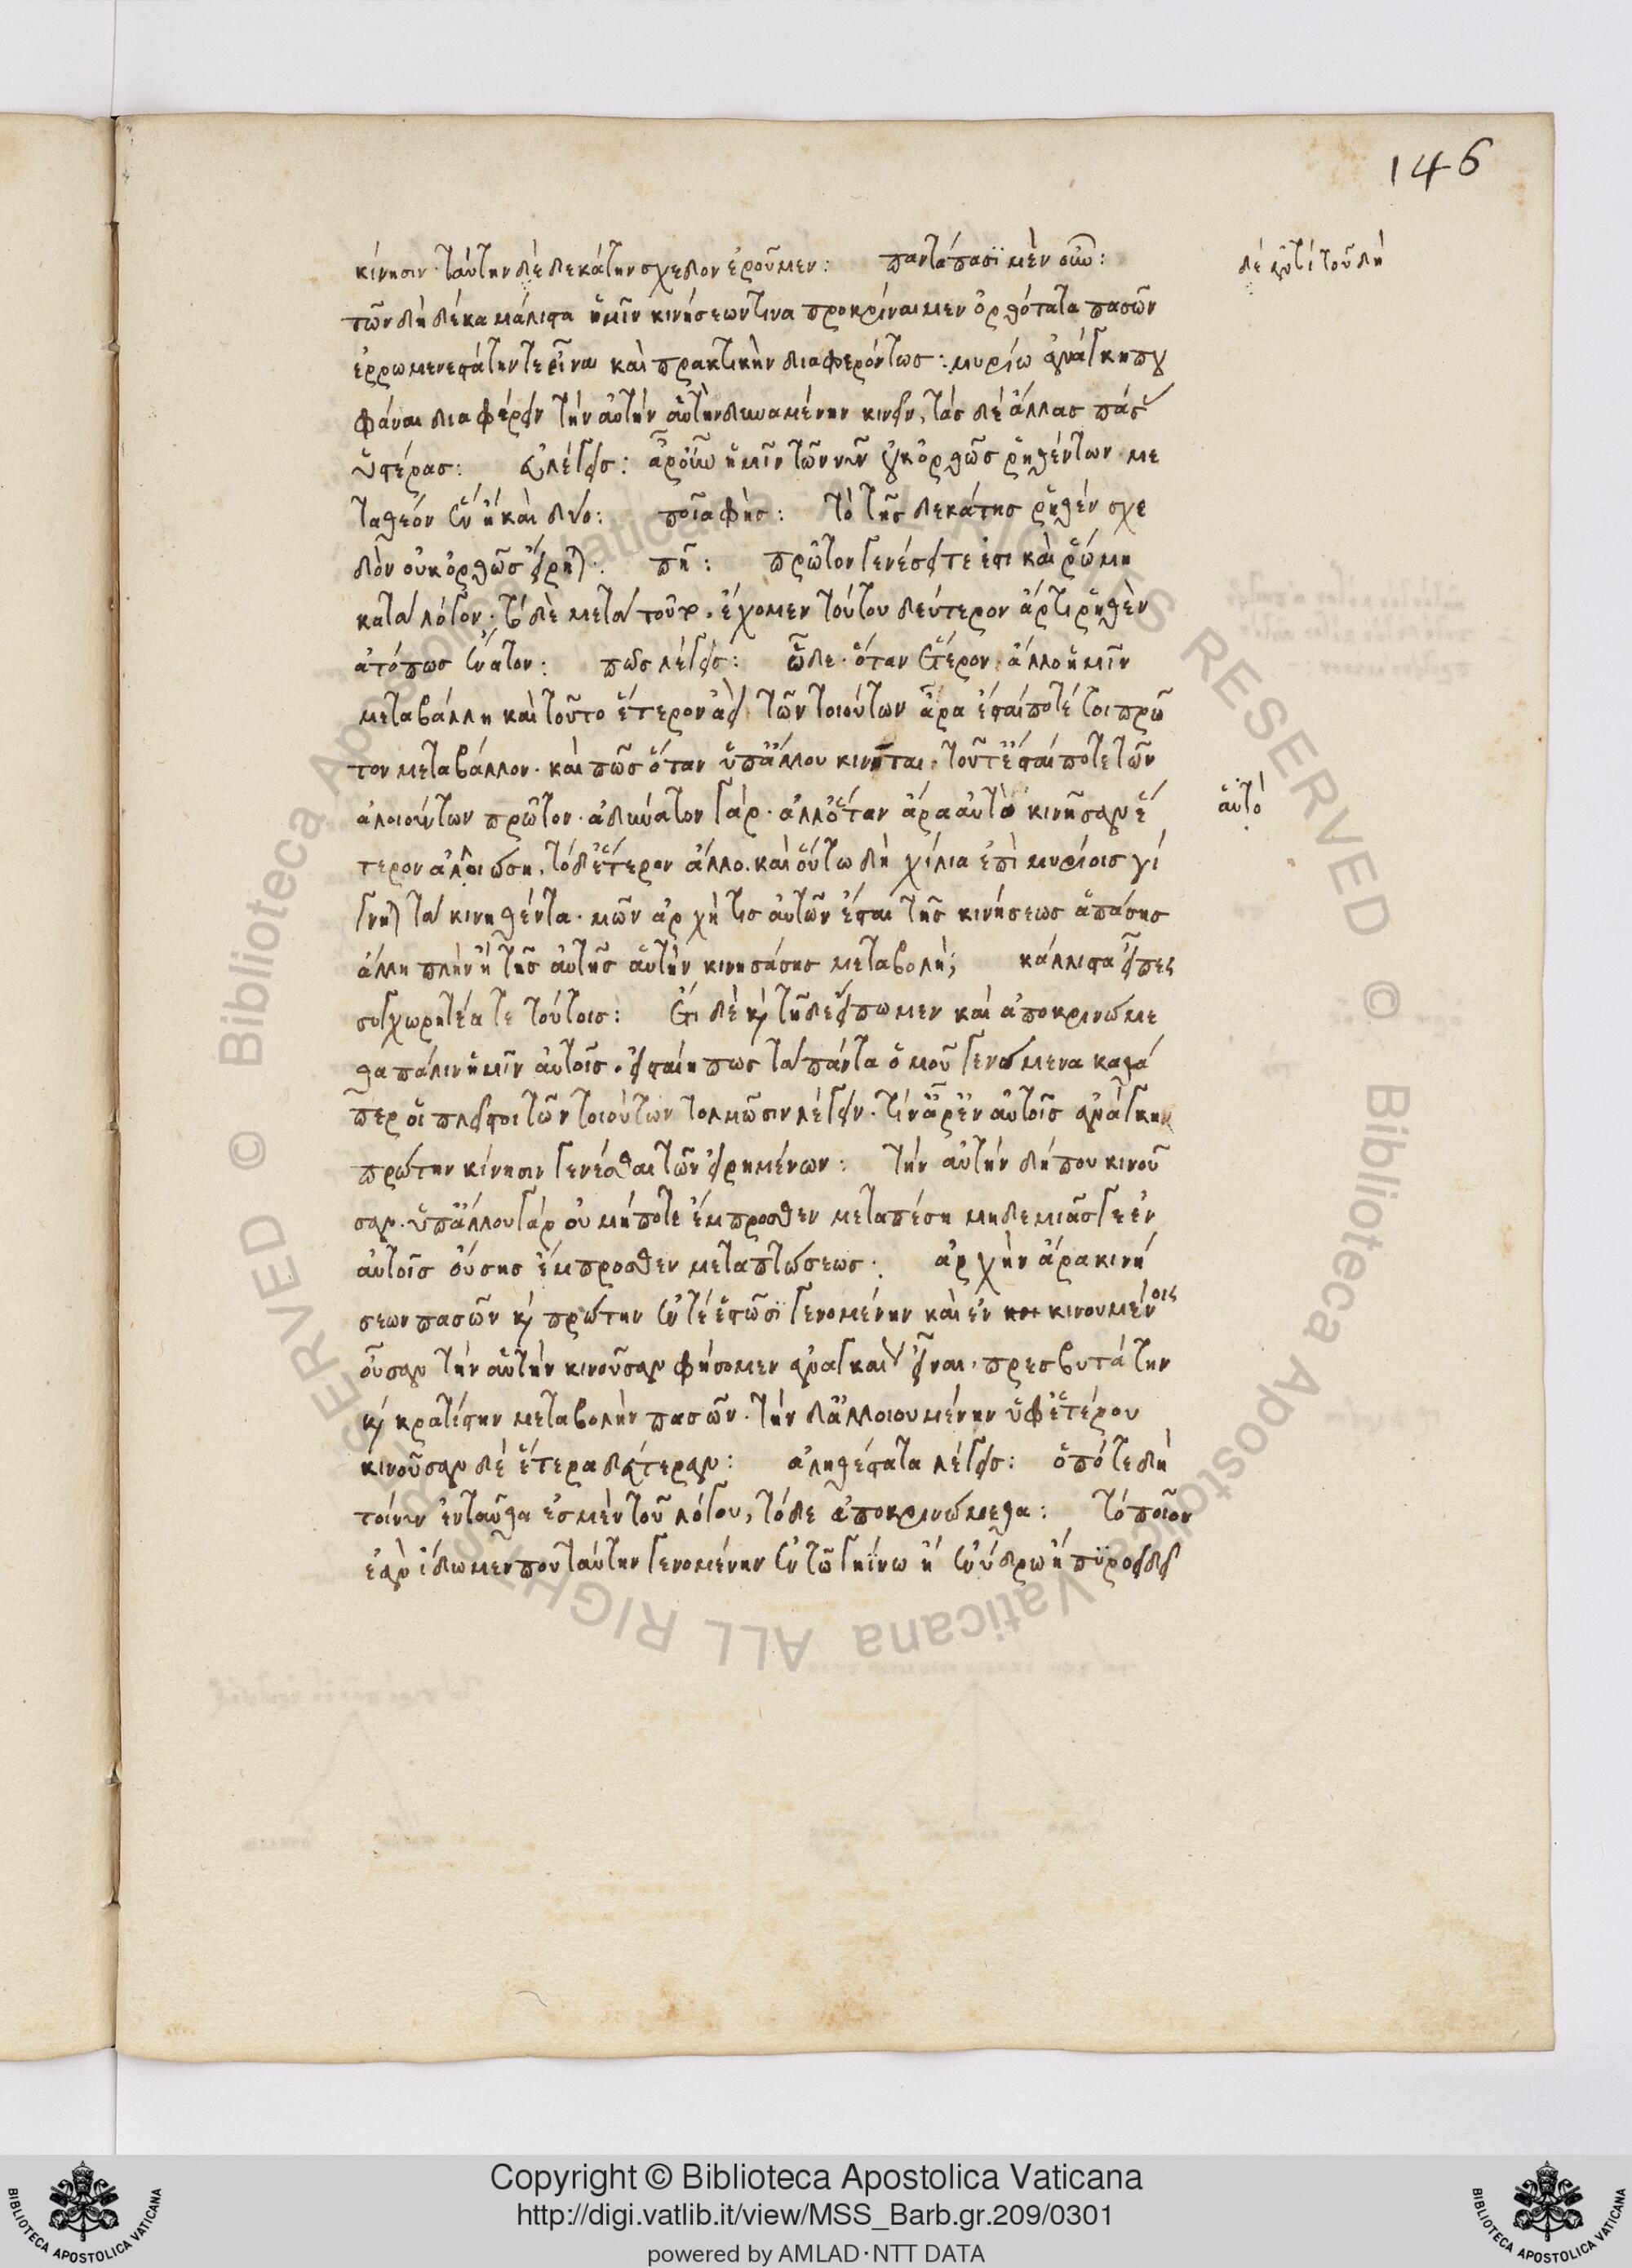 146
κίνησιν· ταύτην δὲ δεκάτην σχεδὸν ἐροῦμεν: παντάπασι μὲν οὖν:
δὲ ἀντὶ τοῦ δὴ
τῶν δὴ δέκα μάλιστα ἡμῖν κινήσεων τίνα προκρίναιμεν ὀρθότατα πασῶν
ἐρρωμενεστάτην τε εἶναι καὶ πρακτικὴν διαφερόντως: μυρίω ἀνάγκη που
φάναι διαφέρειν τὴν αὐτὴν αὑτὴν δυναμένην κινεῖν, τὰς δὲ ἄλλας πάσ
ὑστέρας: εὖ λέγεις: ἆρ' οὖν ἡμῖν τῶν νῦν οὐκ ὀρθῶς ῥηθέντων με
ταθεόν ἓν ἢ καὶ δύο: ποῖα φής: τὸ τῆς δεκάτης ῥηθέν σχε
δὸν οὐκ ὀρθῶς εἴρηται: πῆ: πρῶτον γενέσει τέ ἐστι καὶ ῥώμη
κατὰ λόγον· τὸ δὲ μετὰ τοῦτο ἔχομεν τούτου δεύτερον ἄρτι ῥηθὲν
ἀτόπως ἔνατον: πῶς λέγεις: ὧδε· ὅταν ἕτερον ἄλλο ἡμῖν
μεταβάλλη καὶ τοῦτο ἕτερον ἀεὶ τῶν τοιούτων ἆρα ἔσται ποτέ τοι πρῶ
τον μεταβάλλον· καὶ πῶς ὅταν ὑπ' ἄλλου κινῆται, τοῦτ' ἔσται ποτε τῶν
ἀλοιούντων πρῶτον· ἀδύνατον γάρ· ἀλλ' ὅταν ἄρα αὐτὸ κινῆσαν ἕ
αὑτό
τερον ἀλοιώση, τὸ δ' ἕτερον ἄλλο, καὶ οὕτω δὴ χίλια ἐπὶ μυρίοις γί
γνηται τὰ κινηθέντα· μῶν ἀρχή τις αὐτῶν ἔσται τῆς κινήσεως ἁπάσης
ἄλλη πλὴν ἡ τῆς αὐτῆς αὑτὴν κινησάσης μεταβολή; κάλλιστα εἶπες
συγχωρητέα τε τούτοις: ἔτι δὲ καὶ τῆδε εἴπωμεν καὶ ἀποκρινώμε
θα πάλιν ἡμῖν αὐτοῖς· εἰ σταίη πως τὰ πάντα ὁμοῦ γενόμενα καθά
περ οἱ πλεῖστοι τῶν τοιούτων τολμῶσιν λέγειν· τίν' ἄρ' ἐν αὐτοῖς ἀνάγκην
πρώτην κίνησιν γενέσθαι τῶν εἰρημένων: τὴν αὐτήν δήπου κινοῦ
σαν· ὑπ' ἄλλου γὰρ οὐ μήποτε ἔμπροσθεν μεταπέση μηδεμιᾶς γε ἐν
αὐτοῖς οὔσης ἔμπροσθεν μεταπτώσεως: ἀρχὴν ἄρα κινή
σεων πασῶν καὶ πρώτην ἔν τε ἑστῶσι γενομένην καὶ ἐν κινουμένοις
οὖσαν τὴν αὑτὴν κινοῦσαν φήσομεν ἀναγκαίως εἶναι, πρεσβυτάτην
καὶ κρατίστην μεταβολὴν πασῶν· τὴν δ' ἀλλοιουμένην ὑφ' ἑτέρου
κινοῦσαν δὲ ἕτερα δευτέραν: ἀληθέστατα λέγεις: ὁπότε δὴ
τοίνυν ἐνταῦθά ἐσμὲν τοῦ λόγου, τόδε ἀποκρινώμεθα: τὸ ποῖον
ἐὰν ἴδωμέν που ταύτην γενομένην ἐν τῶ γηίνω ἢ ἐνύδρω ἢ πυροειδεῖ
Copyright © Biblioteca Apostolica Vaticana
http://digi.vatlib.it/view/MSS_Barb.gr.209/0301
powered by AMLAD·NTT DATA